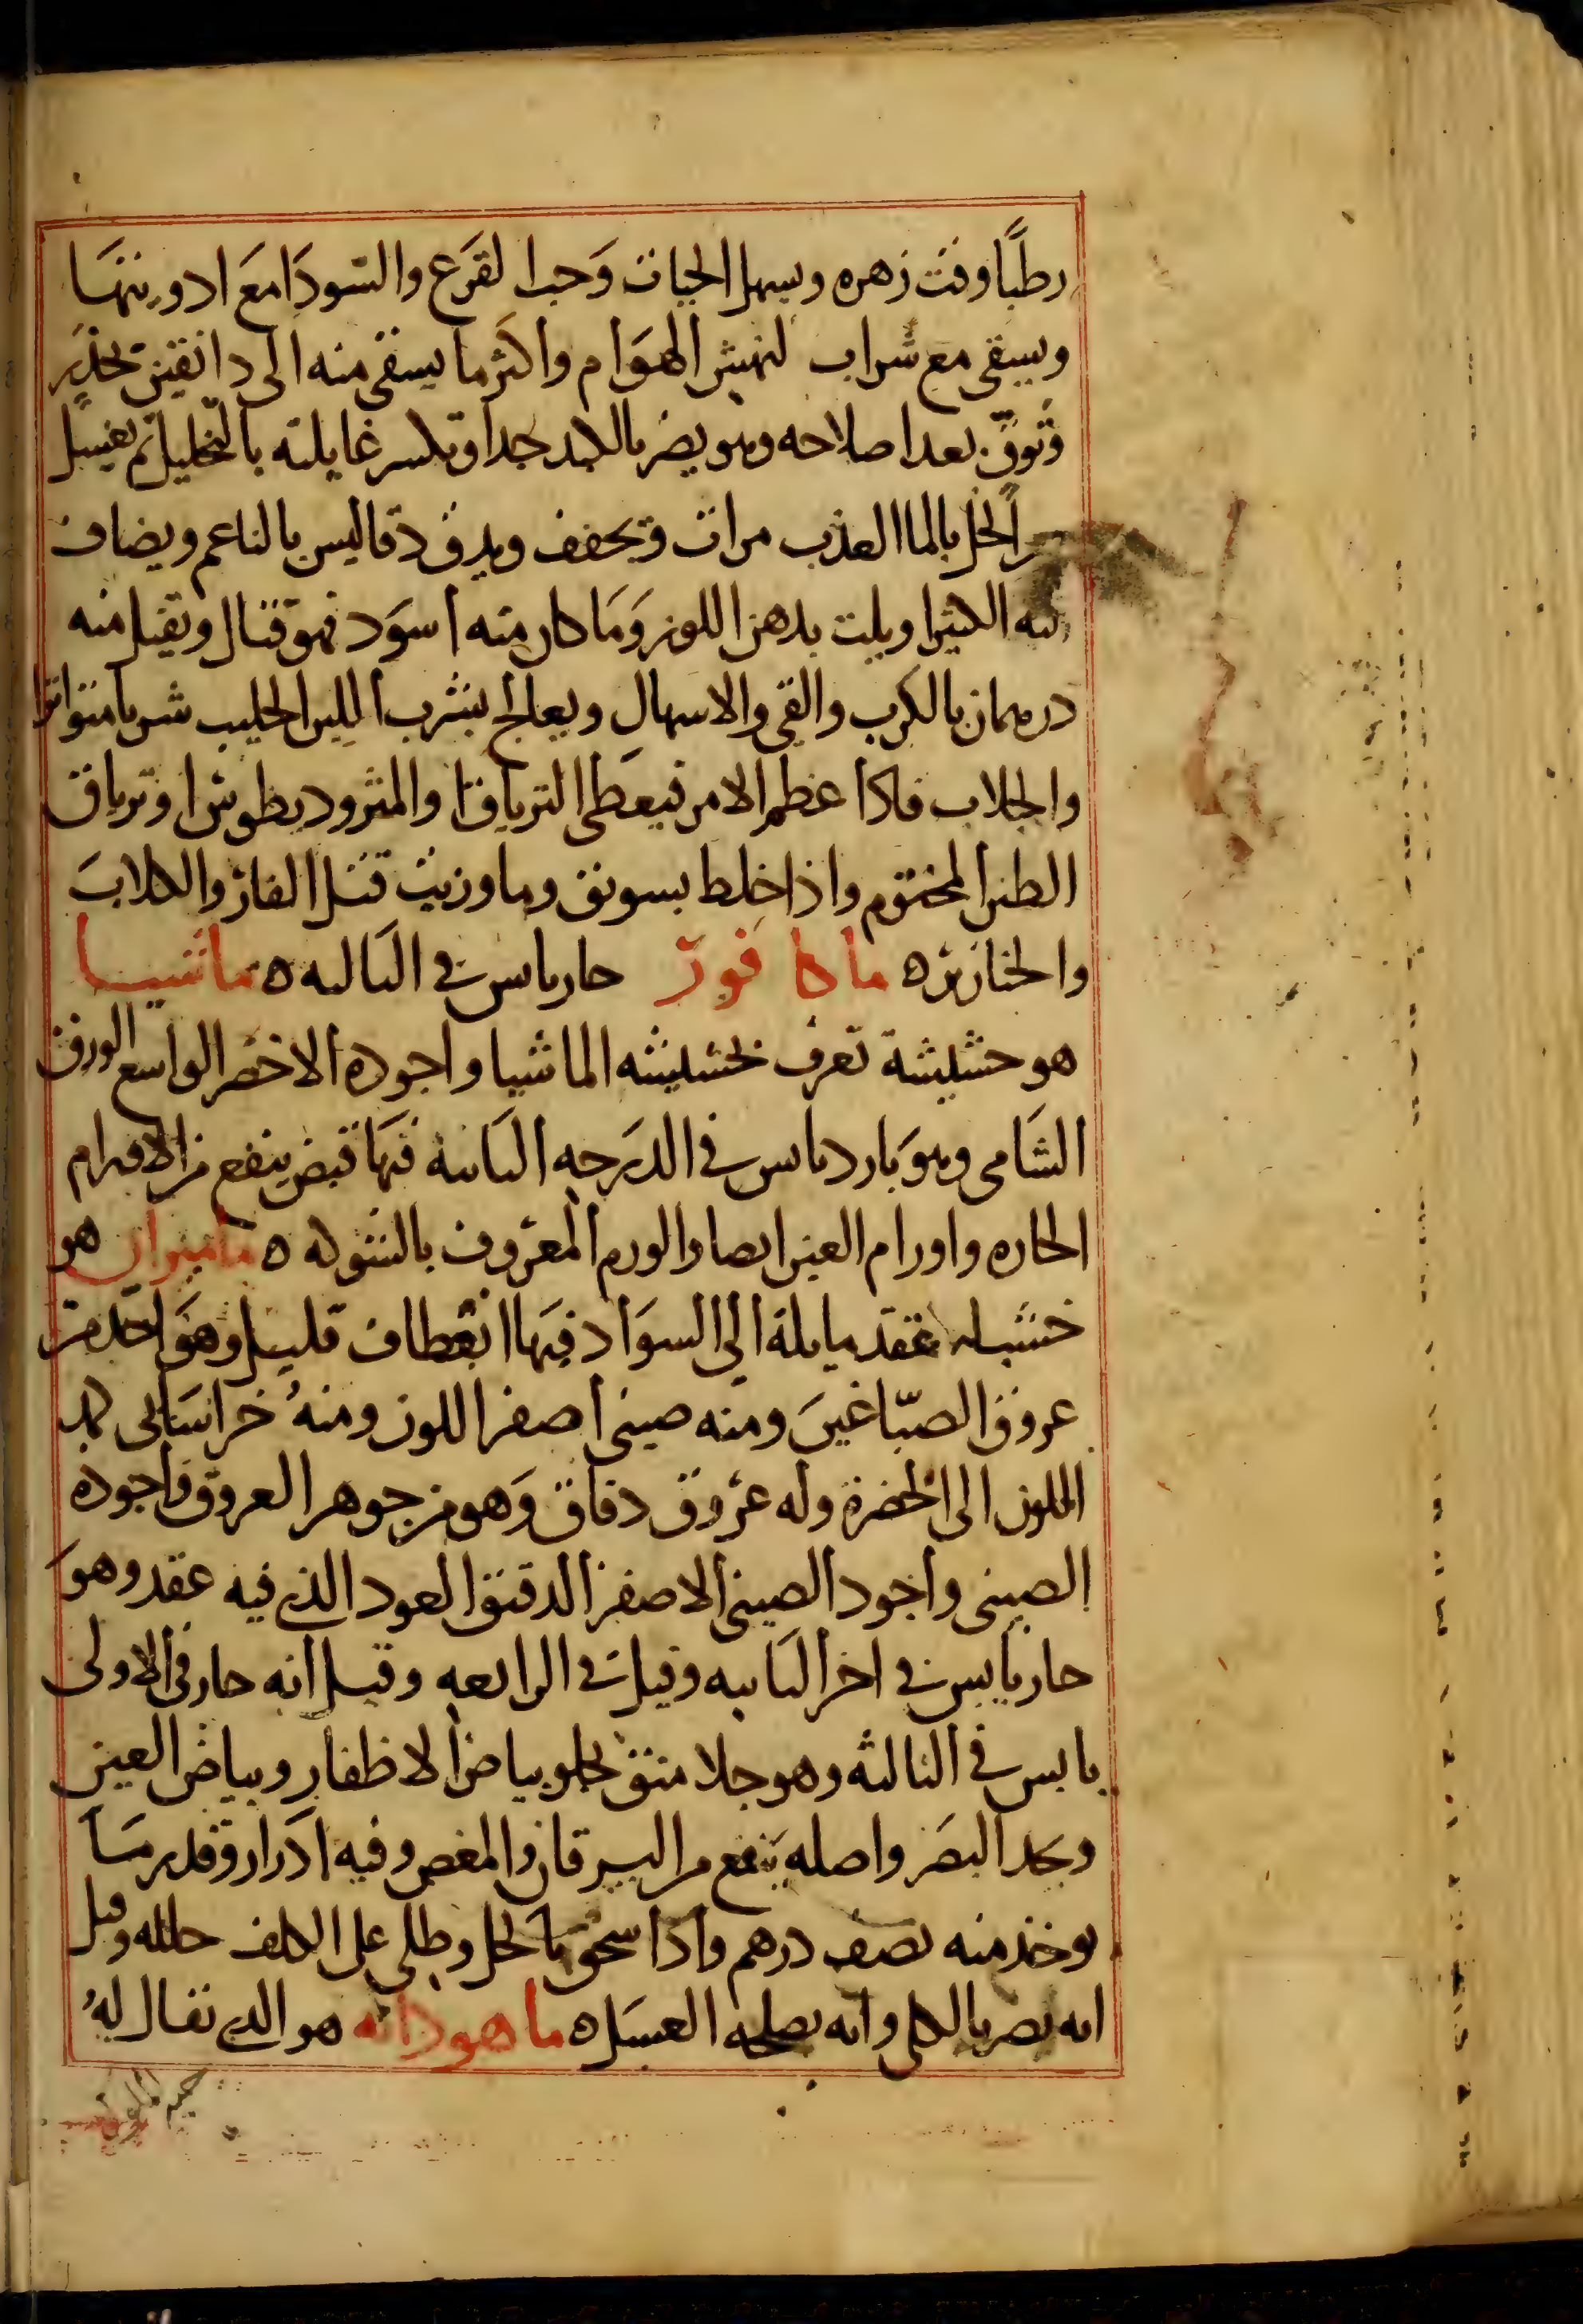 رطبًا وقت زهره ويسهل الحيات وَحب القَرَع والسودَا مَعَ ادويتهَا
ويسقى مع شراب لنهش الهوَام واكثر ما يسقى منه الى دانقين بحذَر
وتوقّ بعد اصلاحه وهو يضر بالكبد جدا وتكسر غايلته بالتخليل ثم يغسل
الخل بالما العذب مرات ويجفف ويدق دقا ليس بالناعم ويضاف
اليه الكثيرا ويلت بدهن اللوز وَمَا كان منه اسوَد فهو قتال ويقتل منه
درهمان بالكرب والقى والاسهال ويعالج بشرب اللبن الحليب شربا متواترا
والجلاب فاذا عظم الامر فيعطى الترياق او المثروديطوس او ترياق
الطين المختوم واذا خلط بسويق وما وزيت قتل الفار والكلابَ
والخنازير ه ماه فور حار يابس في الثالثه ه ماشيا
هو حشيشة تعرف بحشيشه الماشيا واجوده الاخضر الواسع الورق
الشَامى وهوَ بارد يابس في الدرَجه الثانية فيهَا قبض ينفع من الاورام
الحاره واورام العين ايضا والورم المعرُوف بالشوكه ه ماميران هو
خشبات بعقد مايلة الى السوَاد فيهَا انعطاف قليل وهوَ احَد من
عروق الصبّاغينَ ومنه صينى اصفر اللون ومنهُ خراسَانى كمد
اللون الى الخضرة وله عرُوق دقاق وَهو من جوهر العروق واجوده
الصينى واجود الصينى الاصفر الدقيق العود الذى فيه عقد وهوَ
حار يابس في اخر الثانيه وقيل في الرابعه وقيل انه حار في الاولى
يابس في الثالثه وهو جلا منق يجلو بياض الاظفار وبياض العين
ويحد البصَر واصله ينفع من اليرقان والمغص وفيه ادَرار وقدر مَا
يوخذ منه نصف درهم واذا سحق بالخل وطلى على الكلف حلله وقيل
انه يضر بالكلى وانه يصلحه العسَل ه ماهودانه هو الذى يقال لهُ
حب الملوك